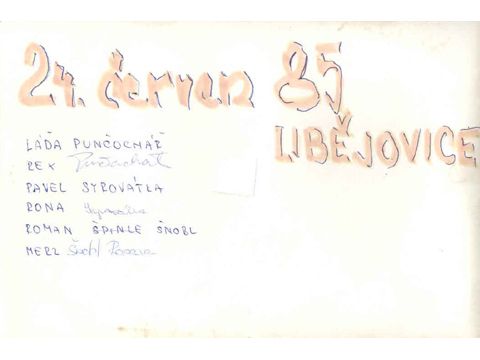 24. červen 85
LIBĚJOVICE
LÁĎA PUNČOCHÁŘ
REX Punčochář
PAVEL SYROVÁTKA
RONA
ROMAN ŠPINLE ŠNOBL
MERZ Šnobl Roman